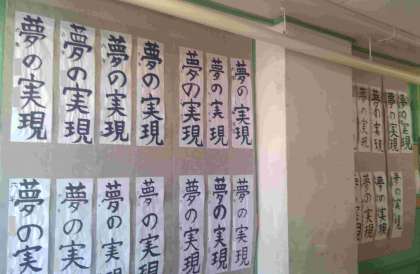 夢の実現
夢の実現
夢の実現
夢の実現
夢の実現
夢の実現
夢の実現
夢の実
夢の実
夢の実現
夢の実現
夢の実現
夢の実現
夢の実現
夢の実現
夢の実現
夢の実現
夢の実現
夢の実
夢の実現
夢の実現
夢の実現